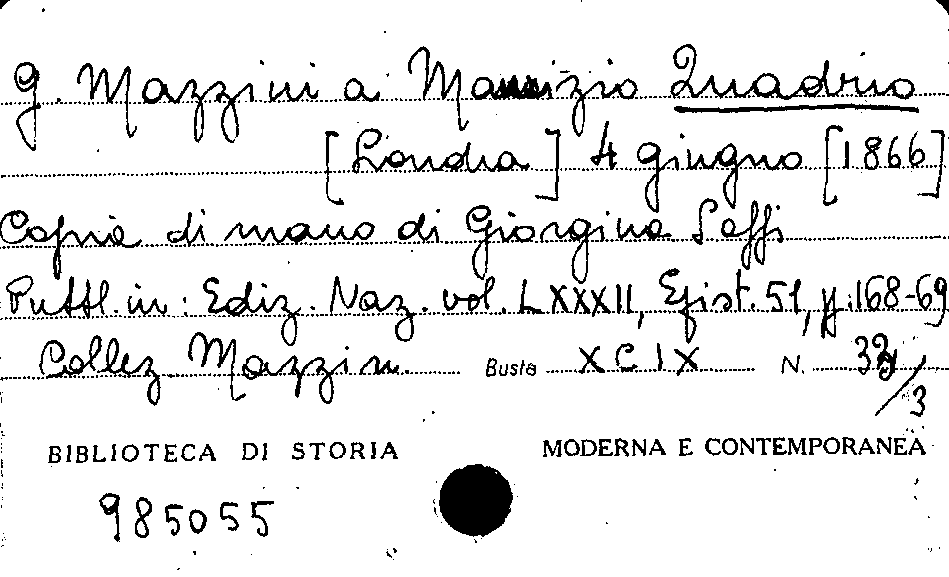 G. Mazzini a Maurizio Quadrio
[Londra] 4 giugno [1866]
Copia di mano di Giorgina Saffi
Pubbl. in: Ediz. Naz. vol. LXXXII, Epist. 51, pp. 168-69
Collez. Mazzini. Busta XCIX N. /3
BIBLIOTECA DI STORIA MODERNA E CONTEMPORANEA
985055